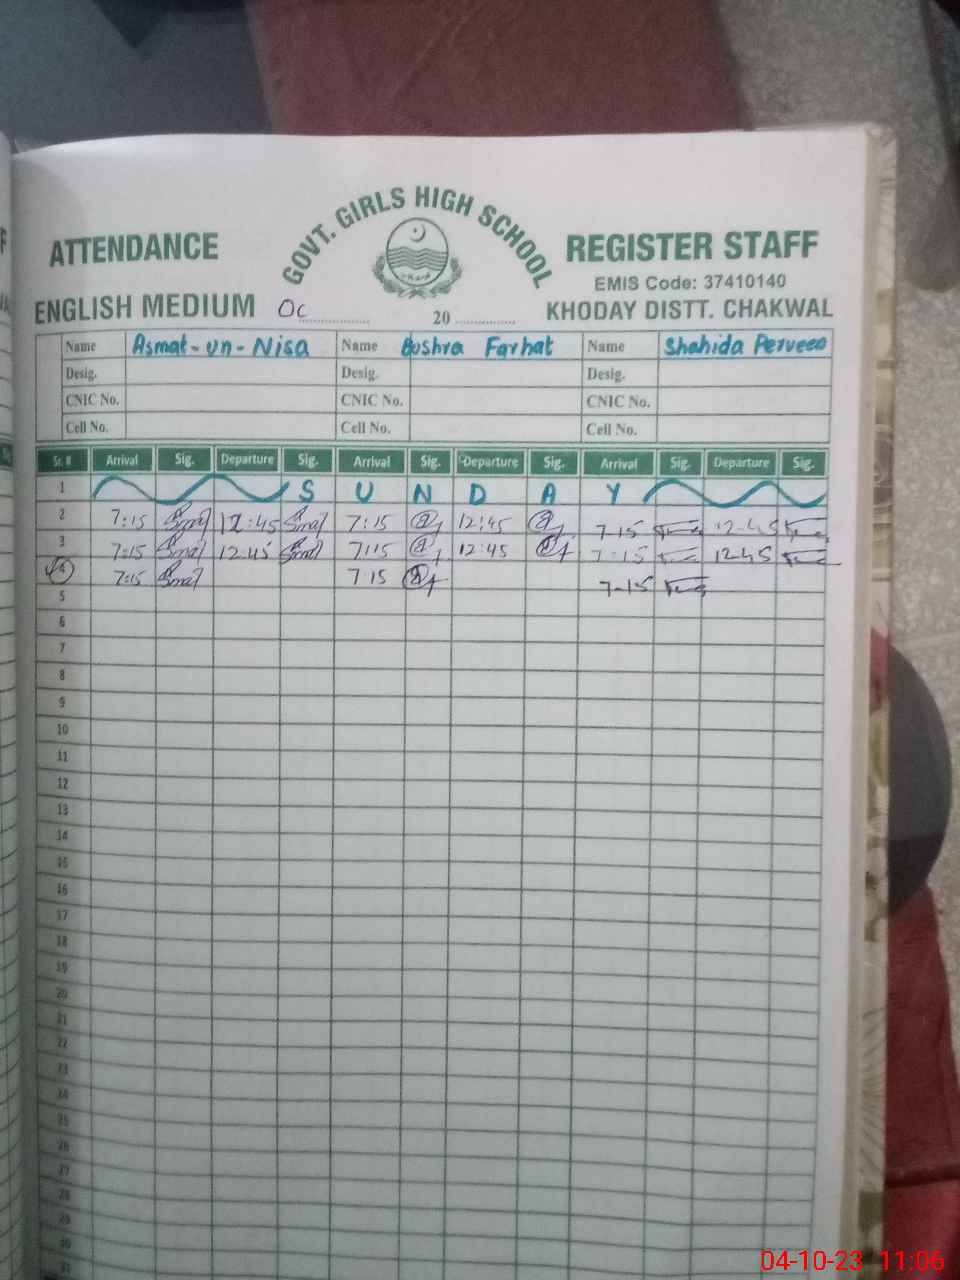 GOVT. GIRLS HIGH SCHOOL
ATTENDANCE REGISTER STAFF
EMIS Code: 37410140
ENGLISH MEDIUM Oc 20 KHODAY DISTT. CHAKWAL
Name Asmat-un-Nisa Name Bushra Farhat Name Shahida Perveen
Desig. Desig. Desig.
CNIC No. CNIC No. CNIC No.
Cell No. Cell No. Cell No.
Sr. # Arrival Sig. Departure Sig. Arrival Sig. Departure Sig. Arrival Sig. Departure Sig.
1 S U N D A Y
2 7:15 12:45 7:15 12:45 7-15 12-45
3 7:15 12:45 7:15 12:45 7:15 12-45
4 7:15 7:15 7-15
5
6
7
8
9
10
11
12
13
14
15
16
17
18
19
20
21
22
23
24
25
26
27
28
29
30
31
04-10-23 11:06